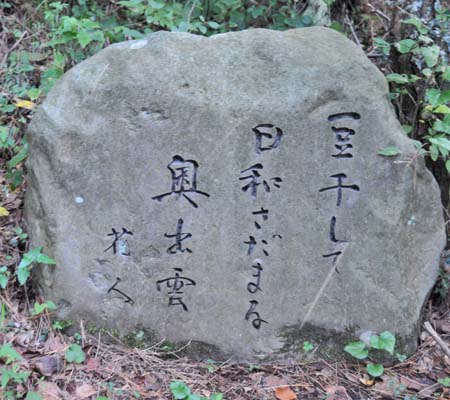 豆干して
日和さだまる
奥出雲
荷人